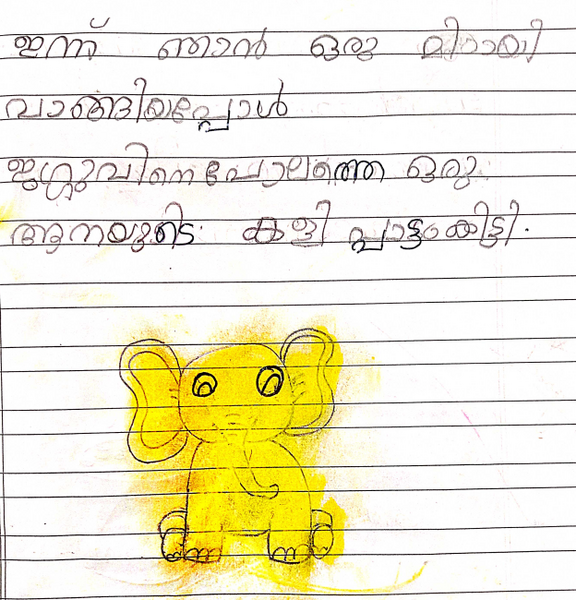 ഇന്ന് ഞാൻ ഒരു മിഠായി
വാങ്ങിയപ്പോൾ
ജഗ്ഗുവിനെപോലത്തെ ഒരു
ആനയുടെ കളി പ്പാട്ടംകിട്ടി.